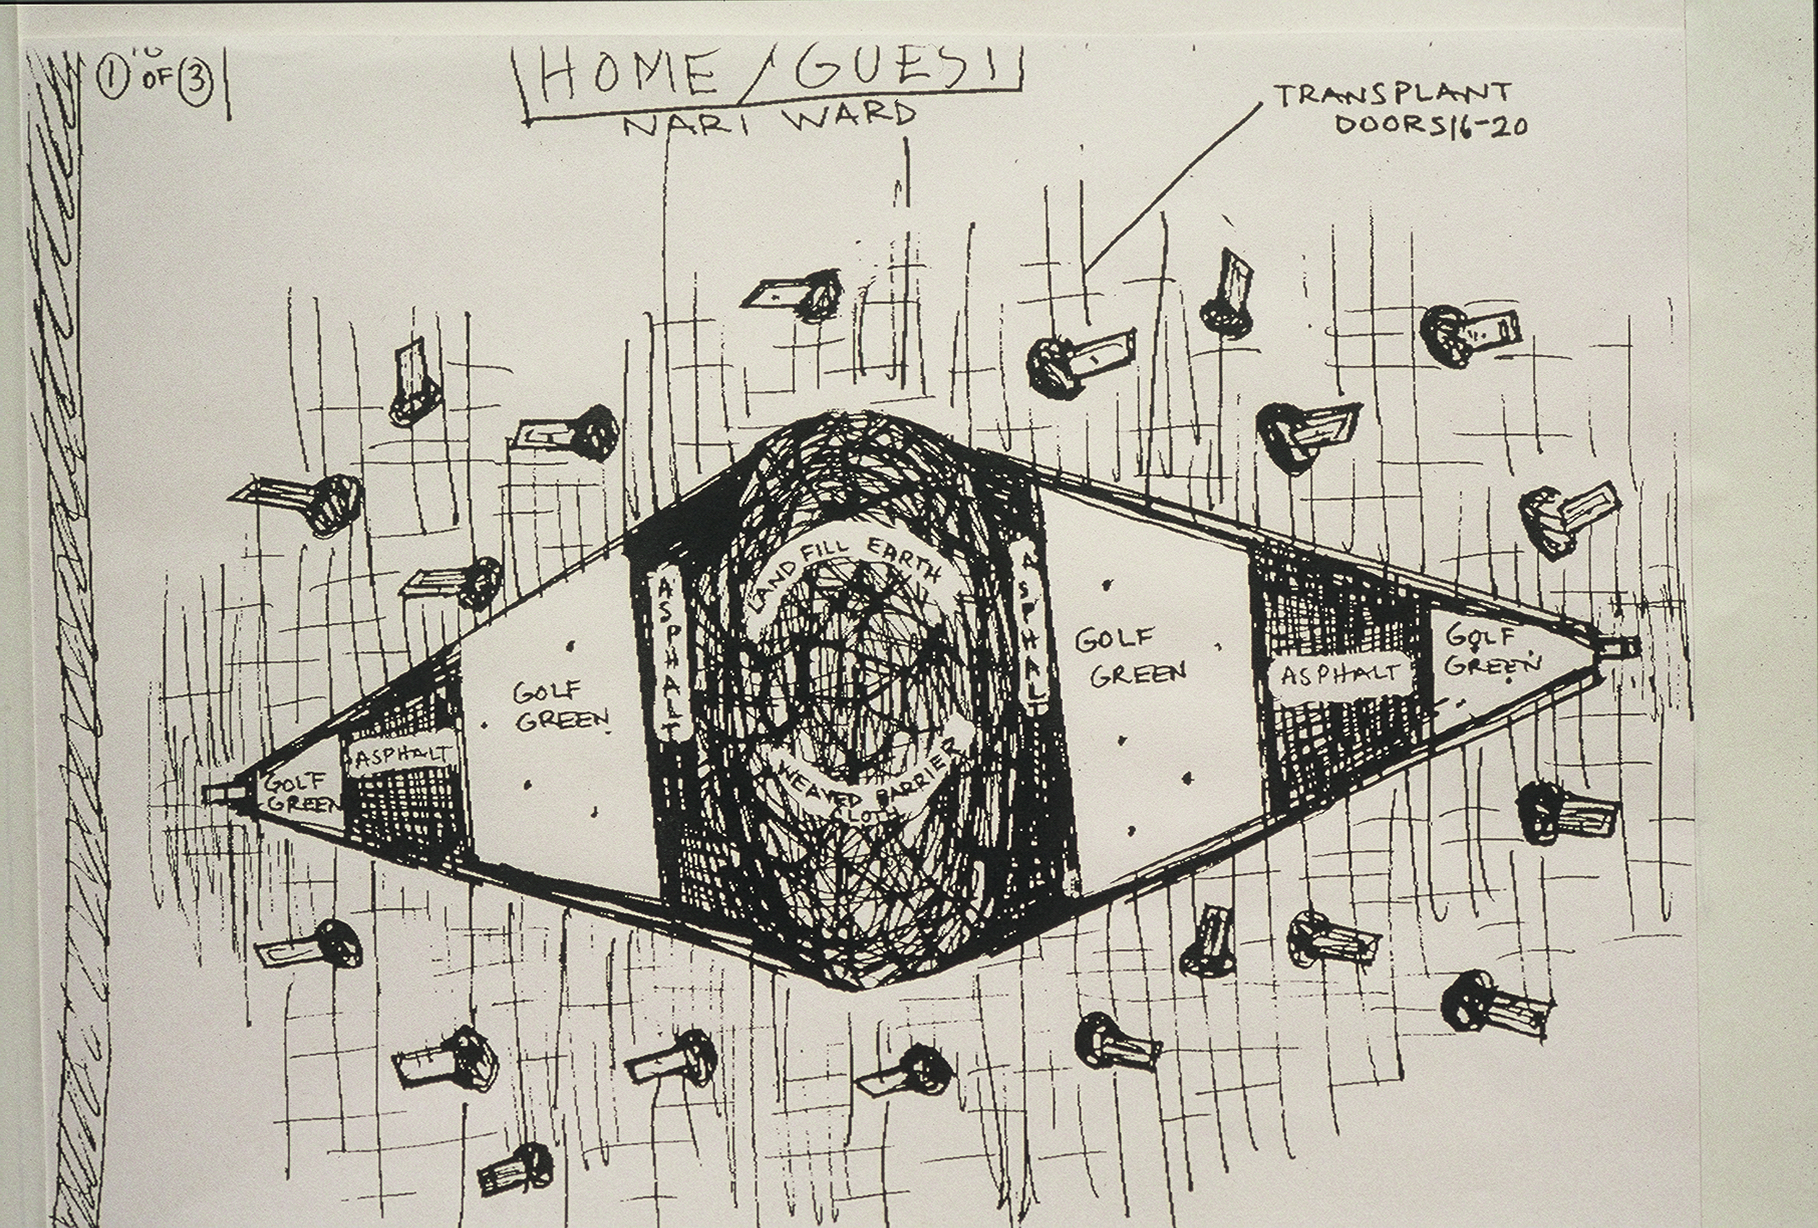 1 OF 3
HOME/GUEST
NARI WARD
TRANSPLANT
DOORS 16-20
LAND FILL EARTH
ASPHALT
ASPHALT
GOLF
GREEN
GOLF
GREEN
ASPHALT
GOLF
GREEN
ASPHALT
GOLF
GREEN
WEAVED BARRIER
CLOTH